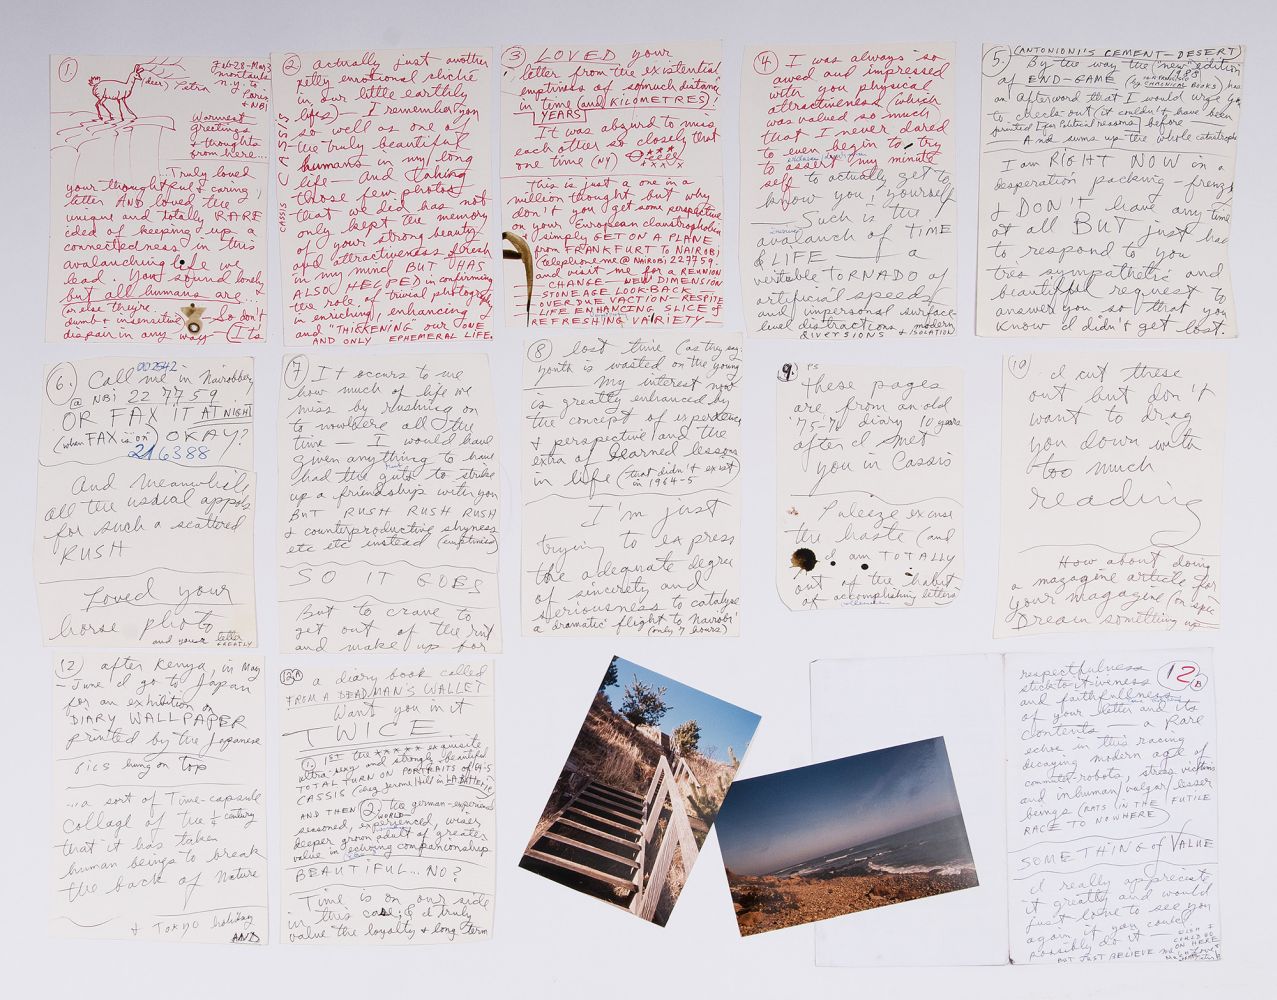 1.
Feb 28 - Mar 3
montauk
ny to
Paris
& NBI
(dear) Petra
Warmest
greetings
& thoughts
from here...
Truly loved
your thoughtful & caring
letter AND loved the
unique and totally RARE
idea of keeping up a
connectedness in this
avalanching life we
lead. You sound lonely
but all humans are...
or else they're
dumb & insensitive — so don't
despair in any way — (It's
2
actually just another
petty emotional cliché
in our little earthly
lifes) — I remember you
so well as one of
the truly beautiful
humans in my long
life — and taking
those few photos
that we did has not
only kept the memory
of your strong beauty
and attractiveness fresh
in my mind BUT HAS
ALSO HELPED in confirming
the role of trivial photography
in enriching, enhancing
and "THICKENING" our ONE
AND ONLY EPHEMERAL LIFE.
CASSIS CLASSIS
3
LOVED your
letter from the existential
emptiness of so much distance
in time (and KILOMETRES)!
YEARS
It was absurd to miss
each other so closely that
one time (NY)
This is just a one in a
million thought, but why
don't you get some perspective
on your European claustrophobia
simply GET ON A PLANE
from FRANKFURT TO NAIROBI
(telephone me @ NAIROBI 227759-
and visit me for a REUNION
CHANGE — NEW DIMENSION
STONEAGE LOOK-BACK
OVERDUE VACTION — RESPITE
LIFE ENHANCING SLICE of
REFRESHING VARIETY —
4
I was always so
awed and impressed
with you physical
attractiveness (which
was valued so much
that I never dared
to even begin to try
to assert my minute
self to actually get to
know you, yourself
Such is the
avalanch of TIME
& LIFE — a
veritable TORNADO of
artificial speeds
and impersonal surface-
level distractions & modern
DIVERSIONS & ISOLATION
5.
(ANTONIONI'S CEMENT-DESERT)
By the way the "new" edition
1988
of END-GAME (by CHRONICAL BOOKS) has
an afterword that I would urge you
to check-out (it couldn't have been
printed for Political reasons) before
And sums up the whole catastrophe
I am RIGHT NOW in a
desperation packing-frenzy
& DON'T have any time
at all BUT just had
to respond to you
très sympathetic and
beautiful request to
answer you so that you
know I didn't get lost.
6.
002542
Call me in Nairobbery
@ NBI 22 77 59
OR FAX IT AT NIGHT
(when FAX is on) OKAY?
216388
And meanwhile
all the usual appols
for such a scattered
RUSH
Loved your
horse photo
and your letter
GREATLY
7
It occurs to me
how much of life we
miss by rushing on
to nowhere all the
time — I would have
given anything to have
had the guts to strike
up a friendship with you
BUT RUSH RUSH RUSH
& counterproductive shyness
etc etc instead (emptiness)
SO IT GOES
But to crave to
get out of the rut
and make up for
8
lost time (as they say
youth is wasted on the young
My interest now
is greatly enhanced by
the concept of experience
& perspective and the
extra of learned lessons
in life (that didn't exist
in 1964-5)
I'm just
trying to express
the adequate degree
of sincerity and
seriousness to catalyse
a "dramatic" flight to Nairobi
(only 7 hours)
9.
PS
these pages
are from an old
'75-76 diary 10 years
after I met
you in Cassis
Pleeze excuse
the haste (and
I am TOTALLY
out of the habit
of accomplishing letters
10
I cut these
out but don't
want to drag
you down with
too much
reading
How about doing
a magazine article for
your magazine (on spec
Dream something up
12
after Kenya, in May
-June I go to Japan
for an exhibition on
DIARY WALLPAPER
printed by the Japanese
pics hung on top
...a sort of Time-capsule
collage of the ½ century
that it has taken
human beings to break
the back of Nature
& TOKYO holiday
AND
12A
a diary book called
FROM A DEAD MAN'S WALLET
Want you in it
TWICE
1. 1ST the ***** exquisite
ultra-sexy and strongly beautiful
TOTAL TURN ON PORTRAITS of 64-5
CASSIS (chez Jerome Hill in LA BATTERIE)
AND THEN 2 the german-experienced
WORLD-
seasoned, experienced, wiser
deeper grown adult of greater
value in echoing companionship
BEAUTIFUL...NO?
Time is on our side
in this case & I truly
value the loyalty & long term
12B
respectfulness
stick-to-it-iveness
and faithfullness
of your letter and its
contents — a rare
echoe in this racing
decaying modern age of
commuter-robots, stress victims
and inhuman, vulgar, lesser
beings (RATS IN THE FUTILE
RACE TO NOWHERE)
SOMETHING of VALUE
I really appreciate
it greatly and would
just love to see you
again if you could
possibly do it —
WISH I
COULD GO
ON HERE
BUT JUST BELIEVE me